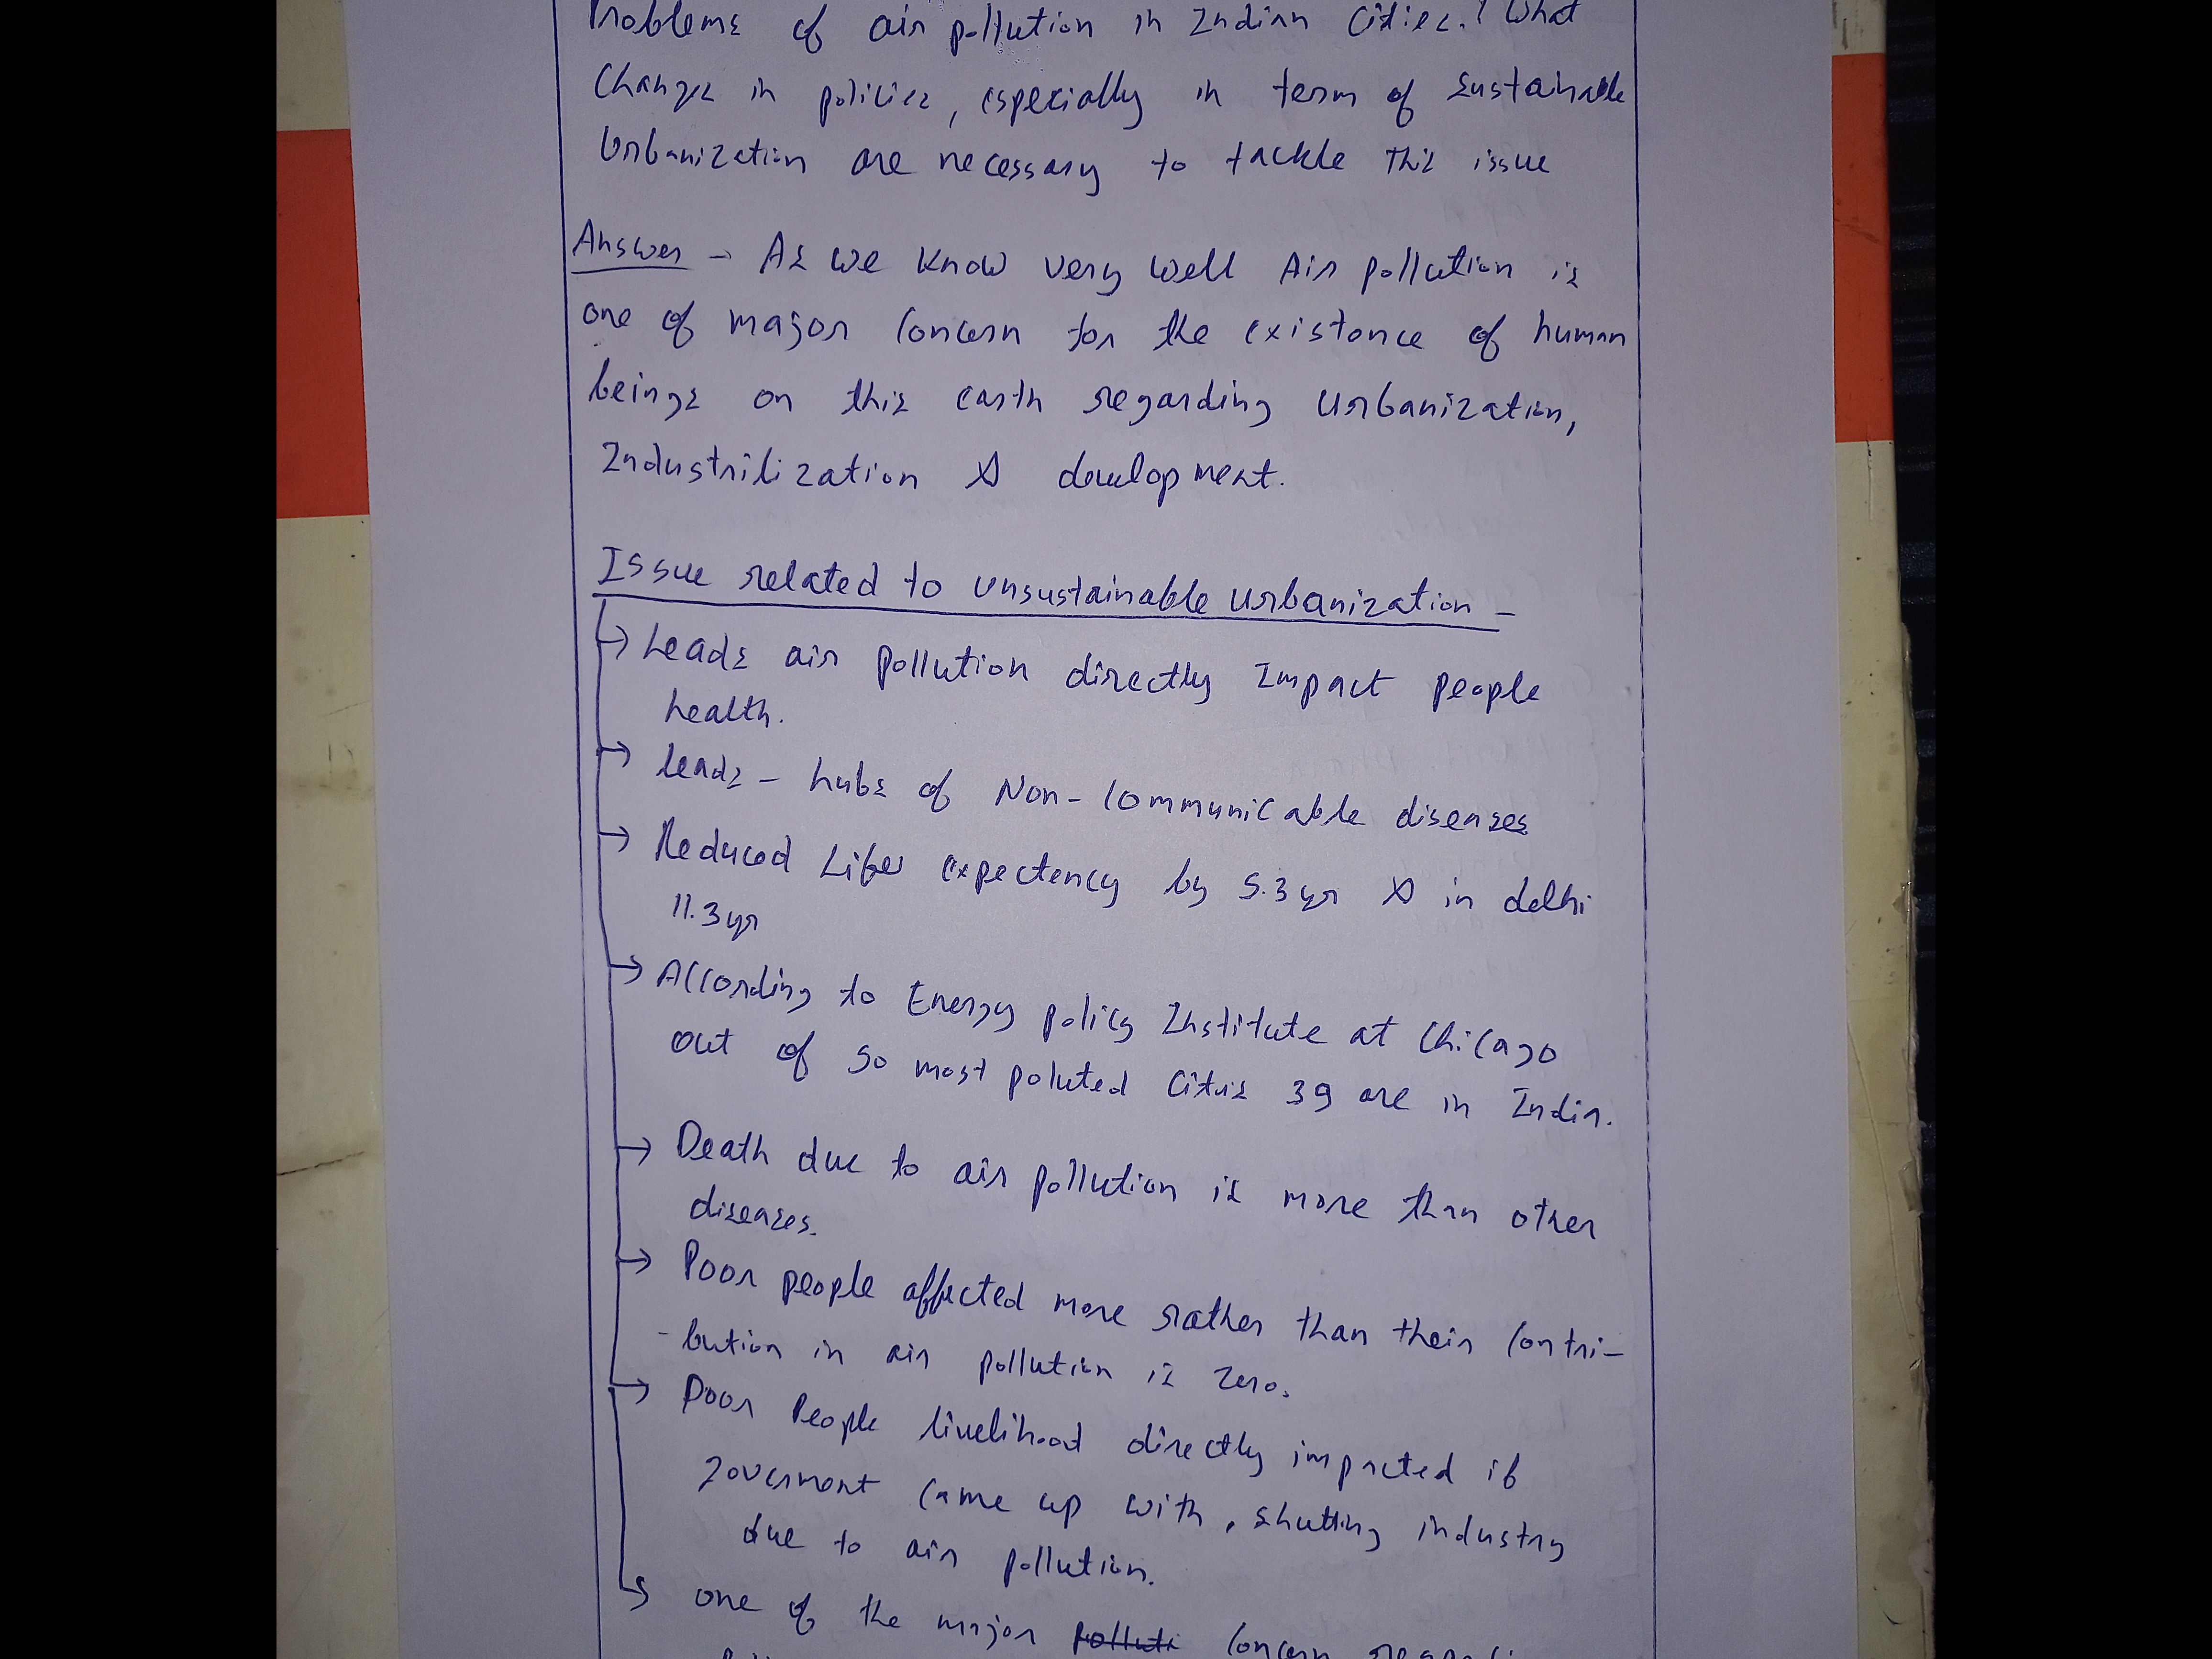 Problems of air pollution in Indian Cities.? What
Changes in policies, especially in term of Sustainable
Urbanization are necessary to tackle This issue
Answer → As we know very well Air pollution is
one of major Concern for the existance of human
beings on this earth regarding Urbanization,
Industrilization & development.
Issue related to Unsustainable Urbanization -
→ Leads air pollution directly Impact people
health.
→ leads - hubs of Non-Communicable diseases
→ Reduced Life expectency by 5.3 yr & in delhi
11.3 yr
→ According to Energy policy Institute at Chicago
out of 50 most poluted Cities 39 are in India.
→ Death due to air pollution is more than other
diseases.
→ Poor people affected more rather than their Contri-
-bution in air pollution is zero.
→ Poor People livelihood directly impacted if
goverment Came up with, shutting industry
due to air pollution.
→ one of the major polluti Concern